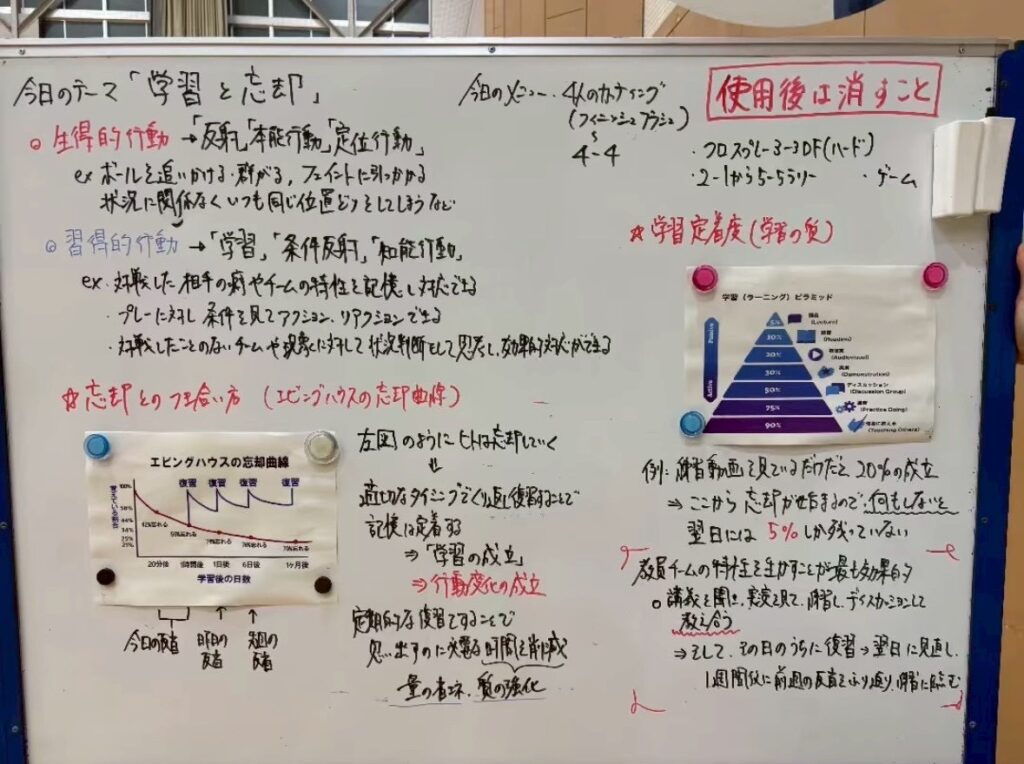 今日のテーマ「学習と忘却」
今日のメニュー
使用後は消すこと
4-4
・2-1から5-5ラリー ・ゲーム
◎生得的行動→「反射」「本能行動」「定位行動」
ex ボールを追いかける・群がる,フェイントに引っかかる
状況に関係なくいつも同じ位置どりをしてしまうなど
◎習得的行動→「学習」「条件反射」「知能行動」
ex・対戦した相手の癖やチームの特性を記憶し対応できる
・プレーに対し条件を見てアクション、リアクションできる
・対戦したことのないチームや現象に対して状況判断をして思考し、効果的な対応ができる
☆忘却とのつき合い方(エビングハウスの忘却曲線)
エビングハウスの忘却曲線
復習 復習 復習 復習
100%
58%
44%
34%
25%
21%
20分後 1時間後 1日後 6日後 1ヶ月後
学習後の日数
今日の反省 昨日の反省 先週の反省
左図のようにヒトは忘却していく
適切なタイミングでくり返し復習することで
記憶は定着する
⇒「学習の成立」
⇒行動変化の成立
定期的な復習をすることで
思い出すのに必要な時間を削減
量の省エネ、質の強化
☆学習定着度(学習の質)
学習(ラーニング)ピラミッド
Passive
Active
5% 講義 (Lecture)
10% 読書 (Reading)
20% 視聴覚 (Audiovisual)
30% 実演 (Demonstration)
50% ディスカッション (Discussion Group)
75% 練習 (Practice Doing)
90% 他者に教える (Teaching Others)
例:練習動画を見ているだけだと20%の成立
⇒ここから忘却が始まるので、何もしないと
翌日には5%しか残っていない
教員チームの特性を生かすことが最も効果的
◎講義を聞き、実演を見て、練習し、ディスカッションして
教え合う
⇒そして、その日のうちに復習→翌日に見直し、
1週間後に前週の反省をふり返り、練習に臨む